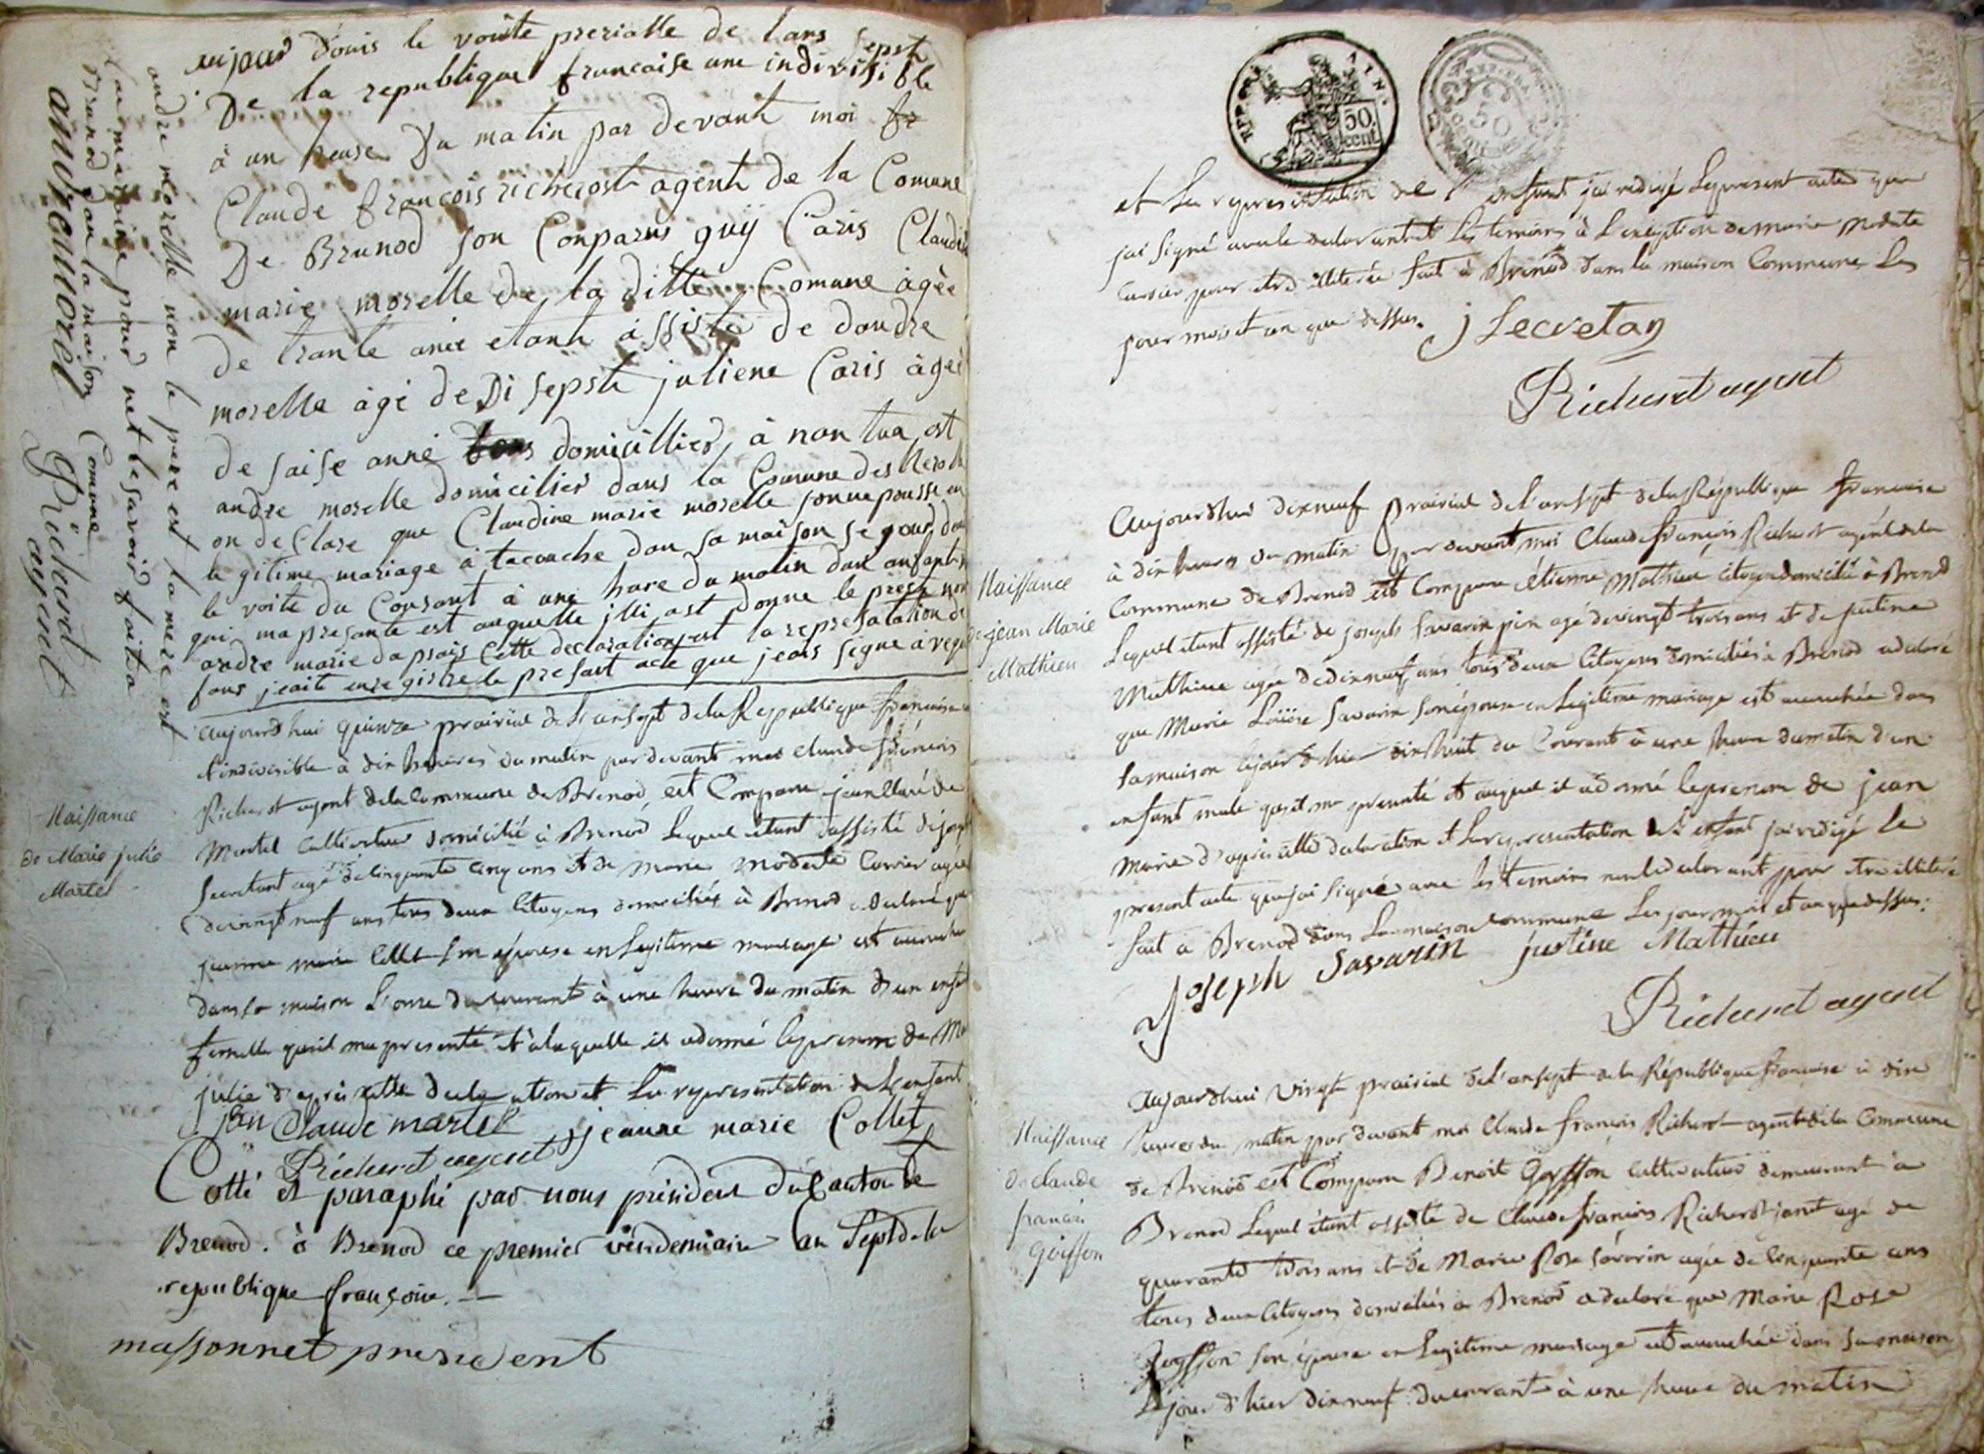 aujour d'ouis le voite prerialle de lans sepst
De la republique francaise une indivisible
à un heuse Du matin par devant moi fr
Claude francois richerost agent de la Comune
De Brunod son Conparus guÿ Caris Claudi
marie morelle de la ditte Comune àgèe
de trante anié etant àssisté de dandre
morelle àgé de Di sepst juliene Caris àgeé
de saise anné tous domicillier à nantua est
andre morelle domicilier dans la Comune des Nero
on declare que Claudine marie morelle sonnepousse en
le gitime mariage à tacouche dan sa maison se jour dui
le voite du Cousant à une hure du matin dun anfant
qui ma presante est auquelle illi ast donne le presno
andre marie daprais Cette declaration est la represatation de
fans jeaité enregistre le presant acte que jeais signe aveque
andre morelle non le pere est lamere est
la mareine pour net lesavoir fait a
Brunod dan la maison Comune
andreanorel Richerost agent
Naissance
de Marie julie
Martel
aujourd'hui quinze prairial de l'an sept de la Republique francaise
et indivisible à dix heures du matin par devant moi claude francois
Richerost agent de la Commune de Brenod est Comparu jean Claude
Martel Cultivateur domicilié à Brenod lequel étant assisté de joseph
Secretant agé de cinquante cinq ans et de marie modeste Carrier agée
de vingt neuf ans tous deux Citoyens domiciliés à Brenod a declaré que
jeanne marie Collet son épouse en legitime mariage est accouchée
dans sa maison l'onze du courant à une heure du matin d'un enfant
femelle qu'il ma presenté et à laquelle il a donné le prenom de Ma
julie d'apres cette declaration et la representation de l'enfant
jan Claude martel jeanne marie Collet
Richerost agent
Cotté et paraphé par nous président du Canton de
Brenod. à Brenod ce premier vendemiaire an Sept de la
republique françoise. —
massonnet president
REP. FRA. AIN.
50.
cent.
50
et la representation de l'enfant j'ai redigé le present acte que
j'ai signé avec le declarant et les temoins à l'exception de marie modeste
Carrier pour etre illiterée fait à Brenod dans la maison Commune les
jour mois et an que dessus. j Secretan
Richerost agent
Naissance
de jean Marie
Mathieu
Aujourd'hui dix neuf prairial de l'an sept de la République francaise
à dix heures du matin par devant moi Claude francois Richerost agent de la
Commune de Brenod est Comparu étienne Mathieu citoyen domicilié à Brenod
Lequel étant assisté de joseph Savarin pin agé de vingt trois ans et de justine
Mathieu agée de dix neuf ans tous deux Citoyens domiciliés à Brenod a declaré
que Marie Louise Savarin son épouse en legitime mariage est accouchée dans
sa maison le jour d'hier dix huit du Courant à une heure du matin d'un
enfant male qu'il ma presenté et auquel il a donné le prenom de jean
Marie d'après cette declaration et la representation de l'enfant j'ai redigé le
present acte que j'ai signé avec les temoins non le declarant pour etre illiteré
fait à Brenod dans la maison Commune les jour mois et an que dessus.
Joseph Savarin justine Mathieu
Richerost agent
Naissance
de claude
francois
Goiffon
Aujourd'hui vingt prairial de l'an sept de la République francaise à dix
heures du matin par devant moi Claude francois Richerost agent de la Commune
de Brenod est Comparu Benoit Goiffon cultivateur demeurant à
Brenod lequel étant assisté de Claude francois Richerost janet agé de
quarante trois ans et de Marie Rose Savarin agée de cinquante ans
tous deux Citoyens domiciliés à Brenod a declaré que Marie Rose
Goiffon son épouse en legitime mariage est accouchée dans sa maison
le jour d'hier dix neuf du courant à une heure du matin